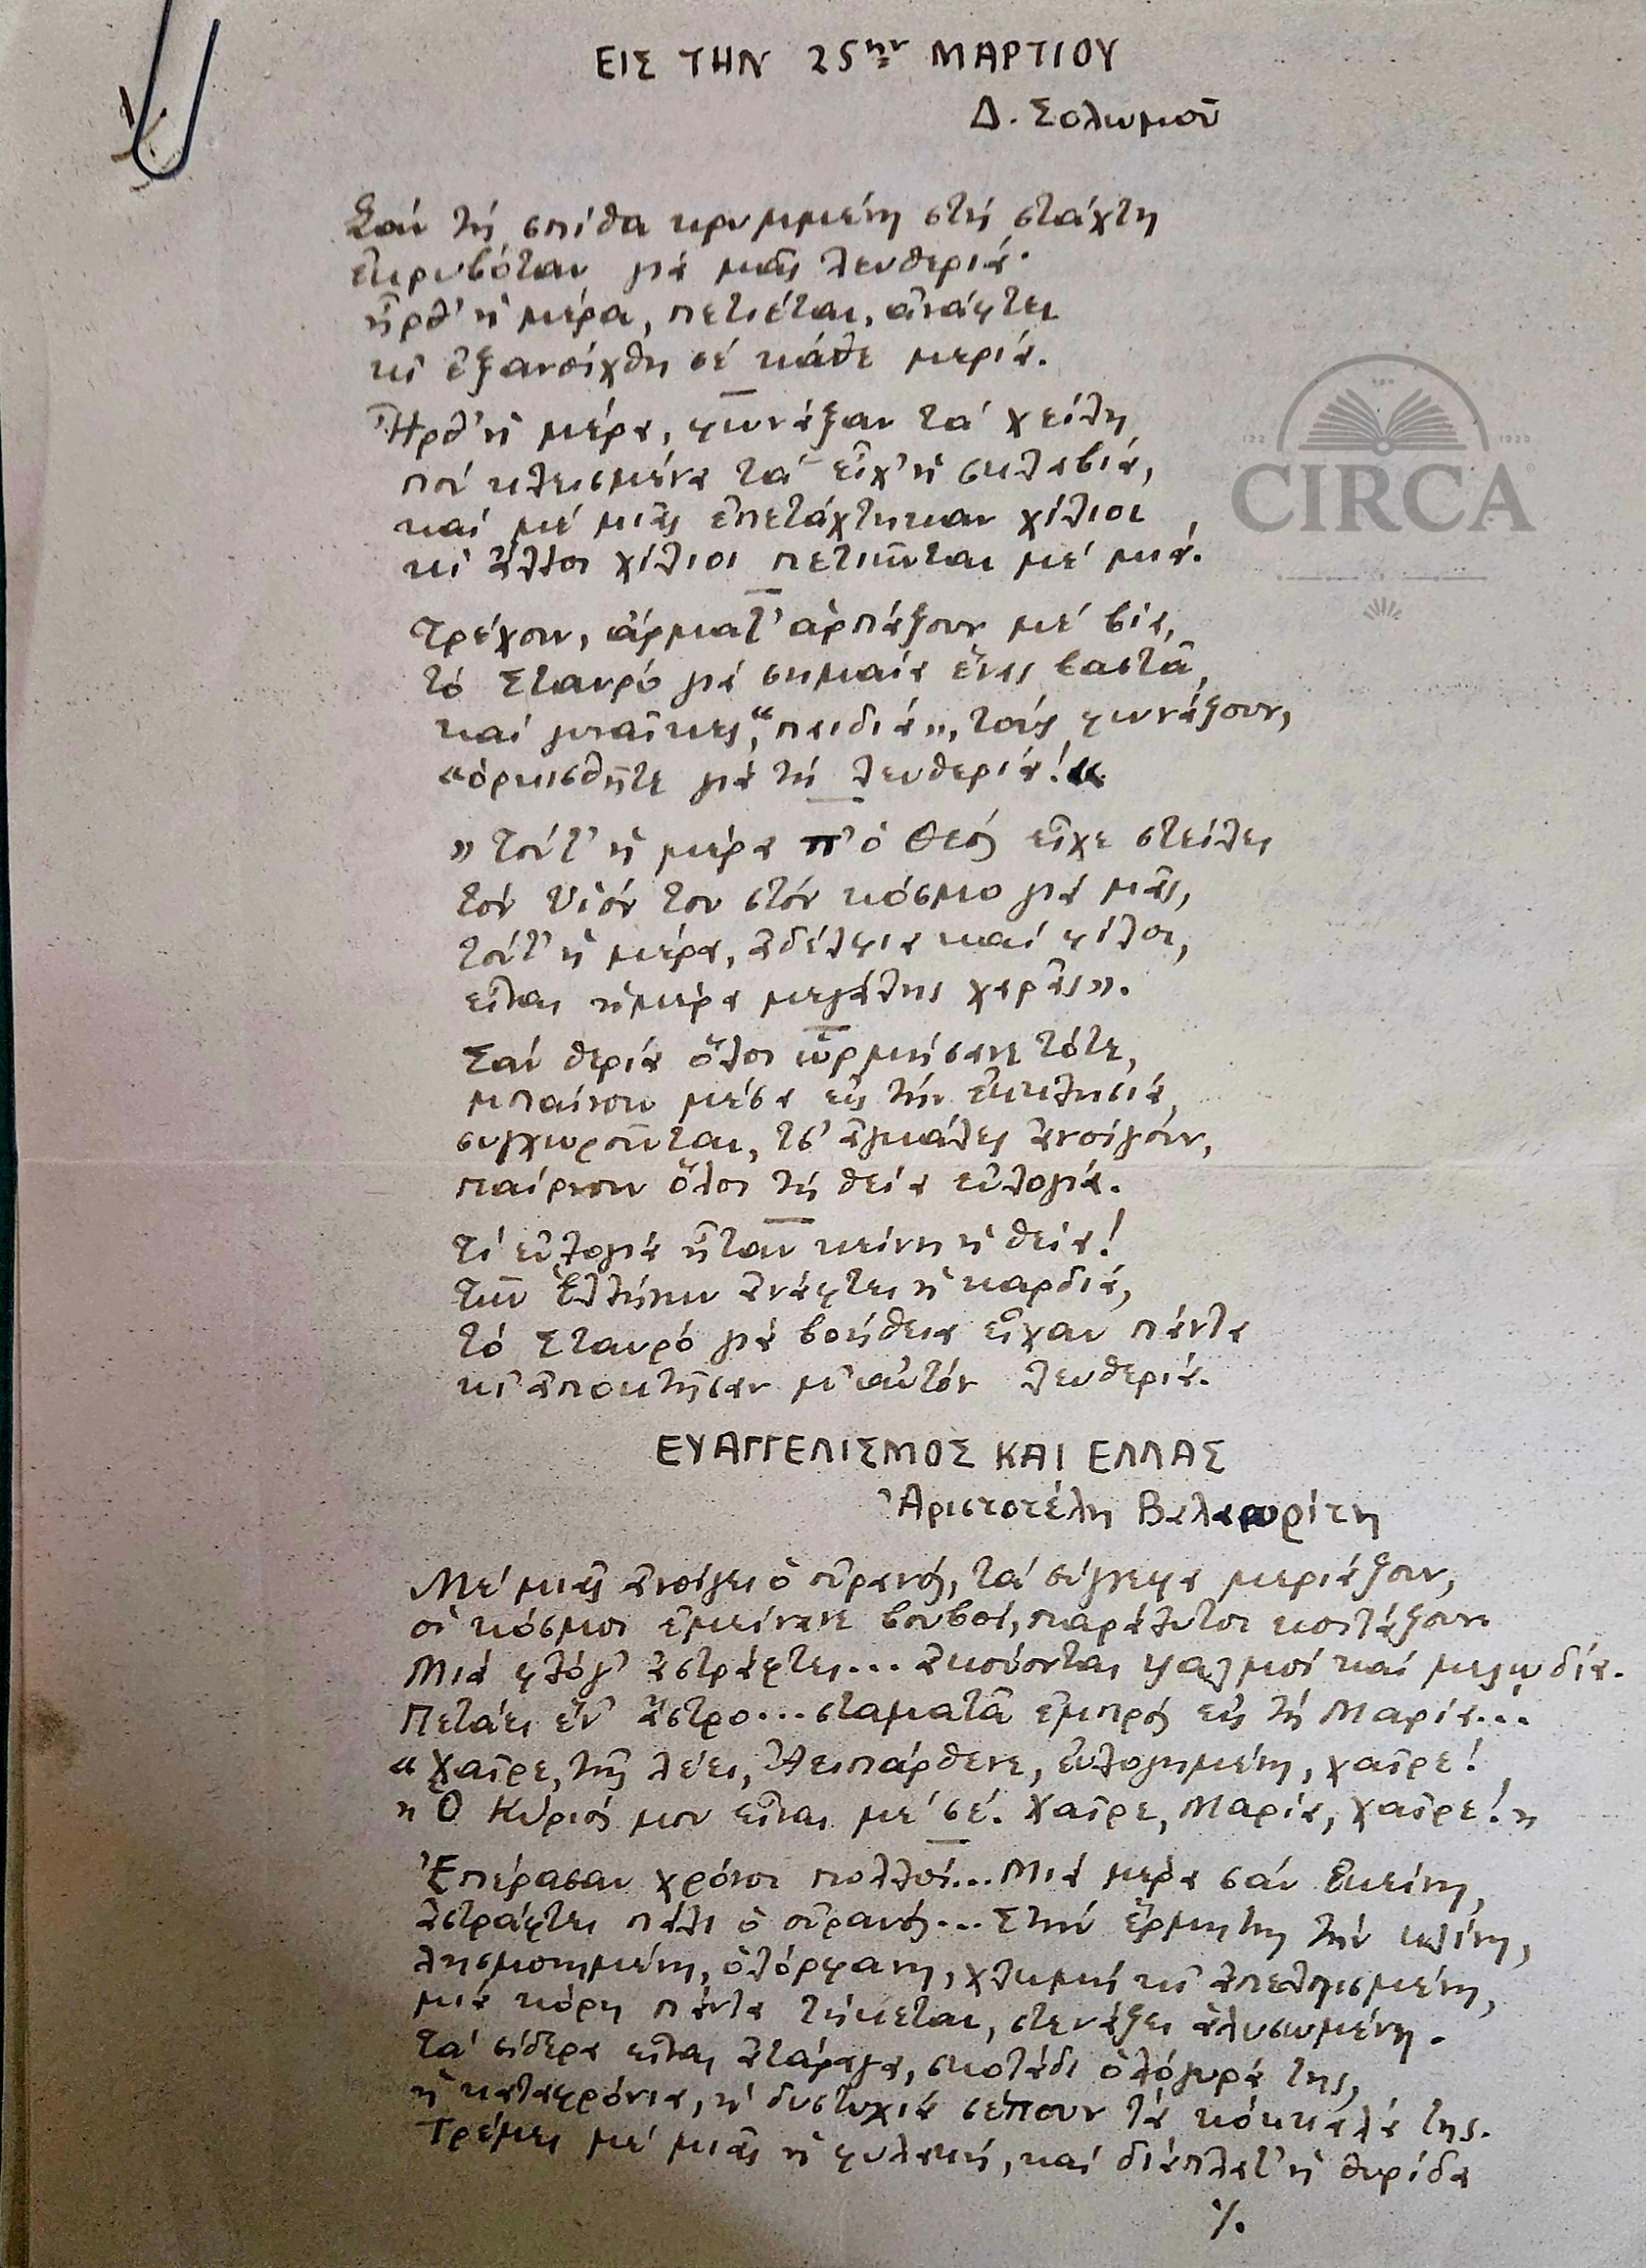 ΕΙΣ ΤΗΝ 25ην ΜΑΡΤΙΟΥ
Δ. Σολωμοῦ
Σάν τή σπίθα κρυμμένη στή στάχτη
ἐκρυβόταν γιά μᾶς λευθεριά·
ἦρθ' ἡ μέρα, πετιέται, ἀνάφτει
κι ἐξανοίχθη σέ κάθε μεριά.
Ἦρθ' ἡ μέρα, φωνάξαν τά χείλη
πού κλεισμένα τά εἶχ' ἡ σκλαβιά,
καί μέ μιᾶς ἐπετάχτηκαν χίλιοι,
κι ἄλλοι χίλιοι πετιῶνται μέ μιά.
Τρέχουν, ἅρματ' ἁρπάζουν μέ βία,
τό Σταυρό γιά σημαία ἕνας βαστᾶ,
καί γυναῖκες, “παιδιά», τούς φωνάζουν,
«ὁρκισθῆτε γιά τή λευθεριά!«
» Τούτ' ἡ μέρα π' ὁ Θεός εἶχε στείλει
τόν Υἱόν του στόν κόσμο γιά μᾶς,
τούτ' ἡ μέρα, ἀδέλφια καί φίλοι,
εἶναι ἡμέρα μεγάλης χαρᾶς».
Σάν θεριά ὅλοι ὡρμήσανε τότε,
μπαίνουν μέσα εἰς τήν ἐκκλησιά,
συγχωροῦνται, τσ' ἀγκάλες ἀνοίγουν,
παίρνουν ὅλοι τή θεία εὐλογιά.
Τί εὐλογιά ἦταν κείνη ἡ θεία!
τῶν Ἑλλήνων ἀνάφτει ἡ καρδιά,
τό Σταυρό γιά βοήθεια εἶχαν πάντα
κι ἀποκτῆσαν μ' αὐτόν λευθεριά.
ΕΥΑΓΓΕΛΙΣΜΟΣ ΚΑΙ ΕΛΛΑΣ
Ἀριστοτέλη Βαλαωρίτη
Μέ μιᾶς ἀνοίγει ὁ οὐρανός, τά σύγνεφα μεριάζουν,
οἱ κόσμοι ἐμείνανε βουβοί, παράλυτοι κοιτάζουν.
Μιά φλόγ' ἀστράφτει... ἀκούονται ψαλμοί καί μελωδία.
Πετάει ἕν' ἄστρο... σταματᾶ ἐμπρός εἰς τή Μαρία...
« Χαῖρε, τῆς λέει, Ἀειπάρθενε, εὐλογημένη, χαῖρε!
» Ὁ Κύριός μου εἶναι μέ σέ. Χαῖρε, Μαρία, χαῖρε! »
Ἐπέρασαν χρόνοι πολλοί... Μιά μέρα σάν ἐκείνη,
ἀστράφτει πάλι ὁ οὐρανός... Στήν ἔρμη της τήν κλίνη,
λησμονημένη, ὁλόρφανη, χλωμή κι ἀπελπισμένη,
μιά κόρη πάντα τήκεται, στενάζει ἁλυσωμένη.
Τά σίδερα εἶναι ἀτάραγα, σκοτάδι ὁλόγυρά της,
ἡ καταφρόνια, ἡ δυστυχιά σέπουν τά κόκκαλά της.
Τρέμει μέ μιᾶς ἡ φυλακή, καί διάπλατ' ἡ θυρίδα
./.
CIRCA